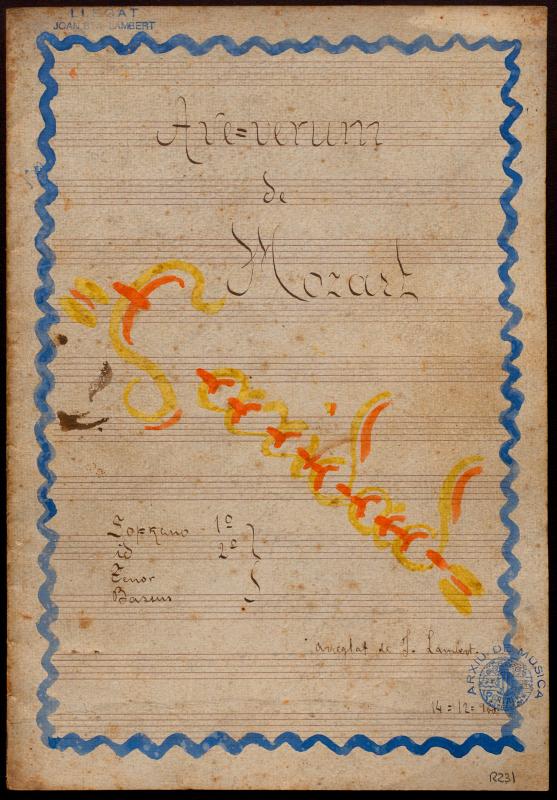 LLEGAT
JOAN BTA. LAMBERT
Ave=verum
de
Mozart
Soprano 1º
id 2º
Tenor
Bassus
arreglat de J. Lambert.
ARXIU DE MÚSICA
14=12=
R231